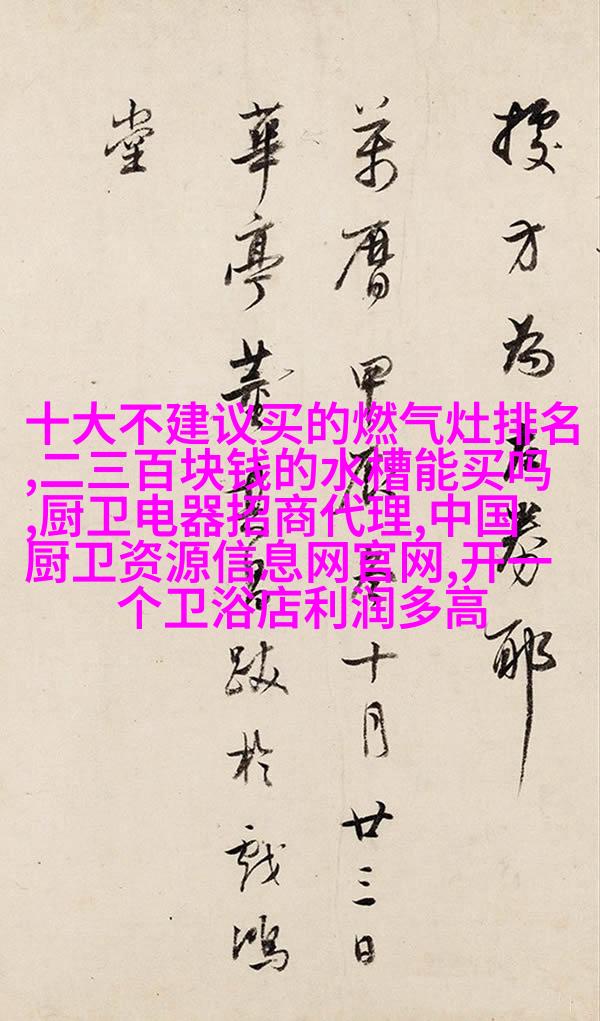 據方為右券耶
萬曆甲辰冬十月廿三日
華亭董其昌跋於戲鴻
堂
十大不建议买的燃气灶排名
,二三百块钱的水槽能买吗
,厨卫电器招商代理,中国
厨卫资源信息网官网,开一
个卫浴店利润多高